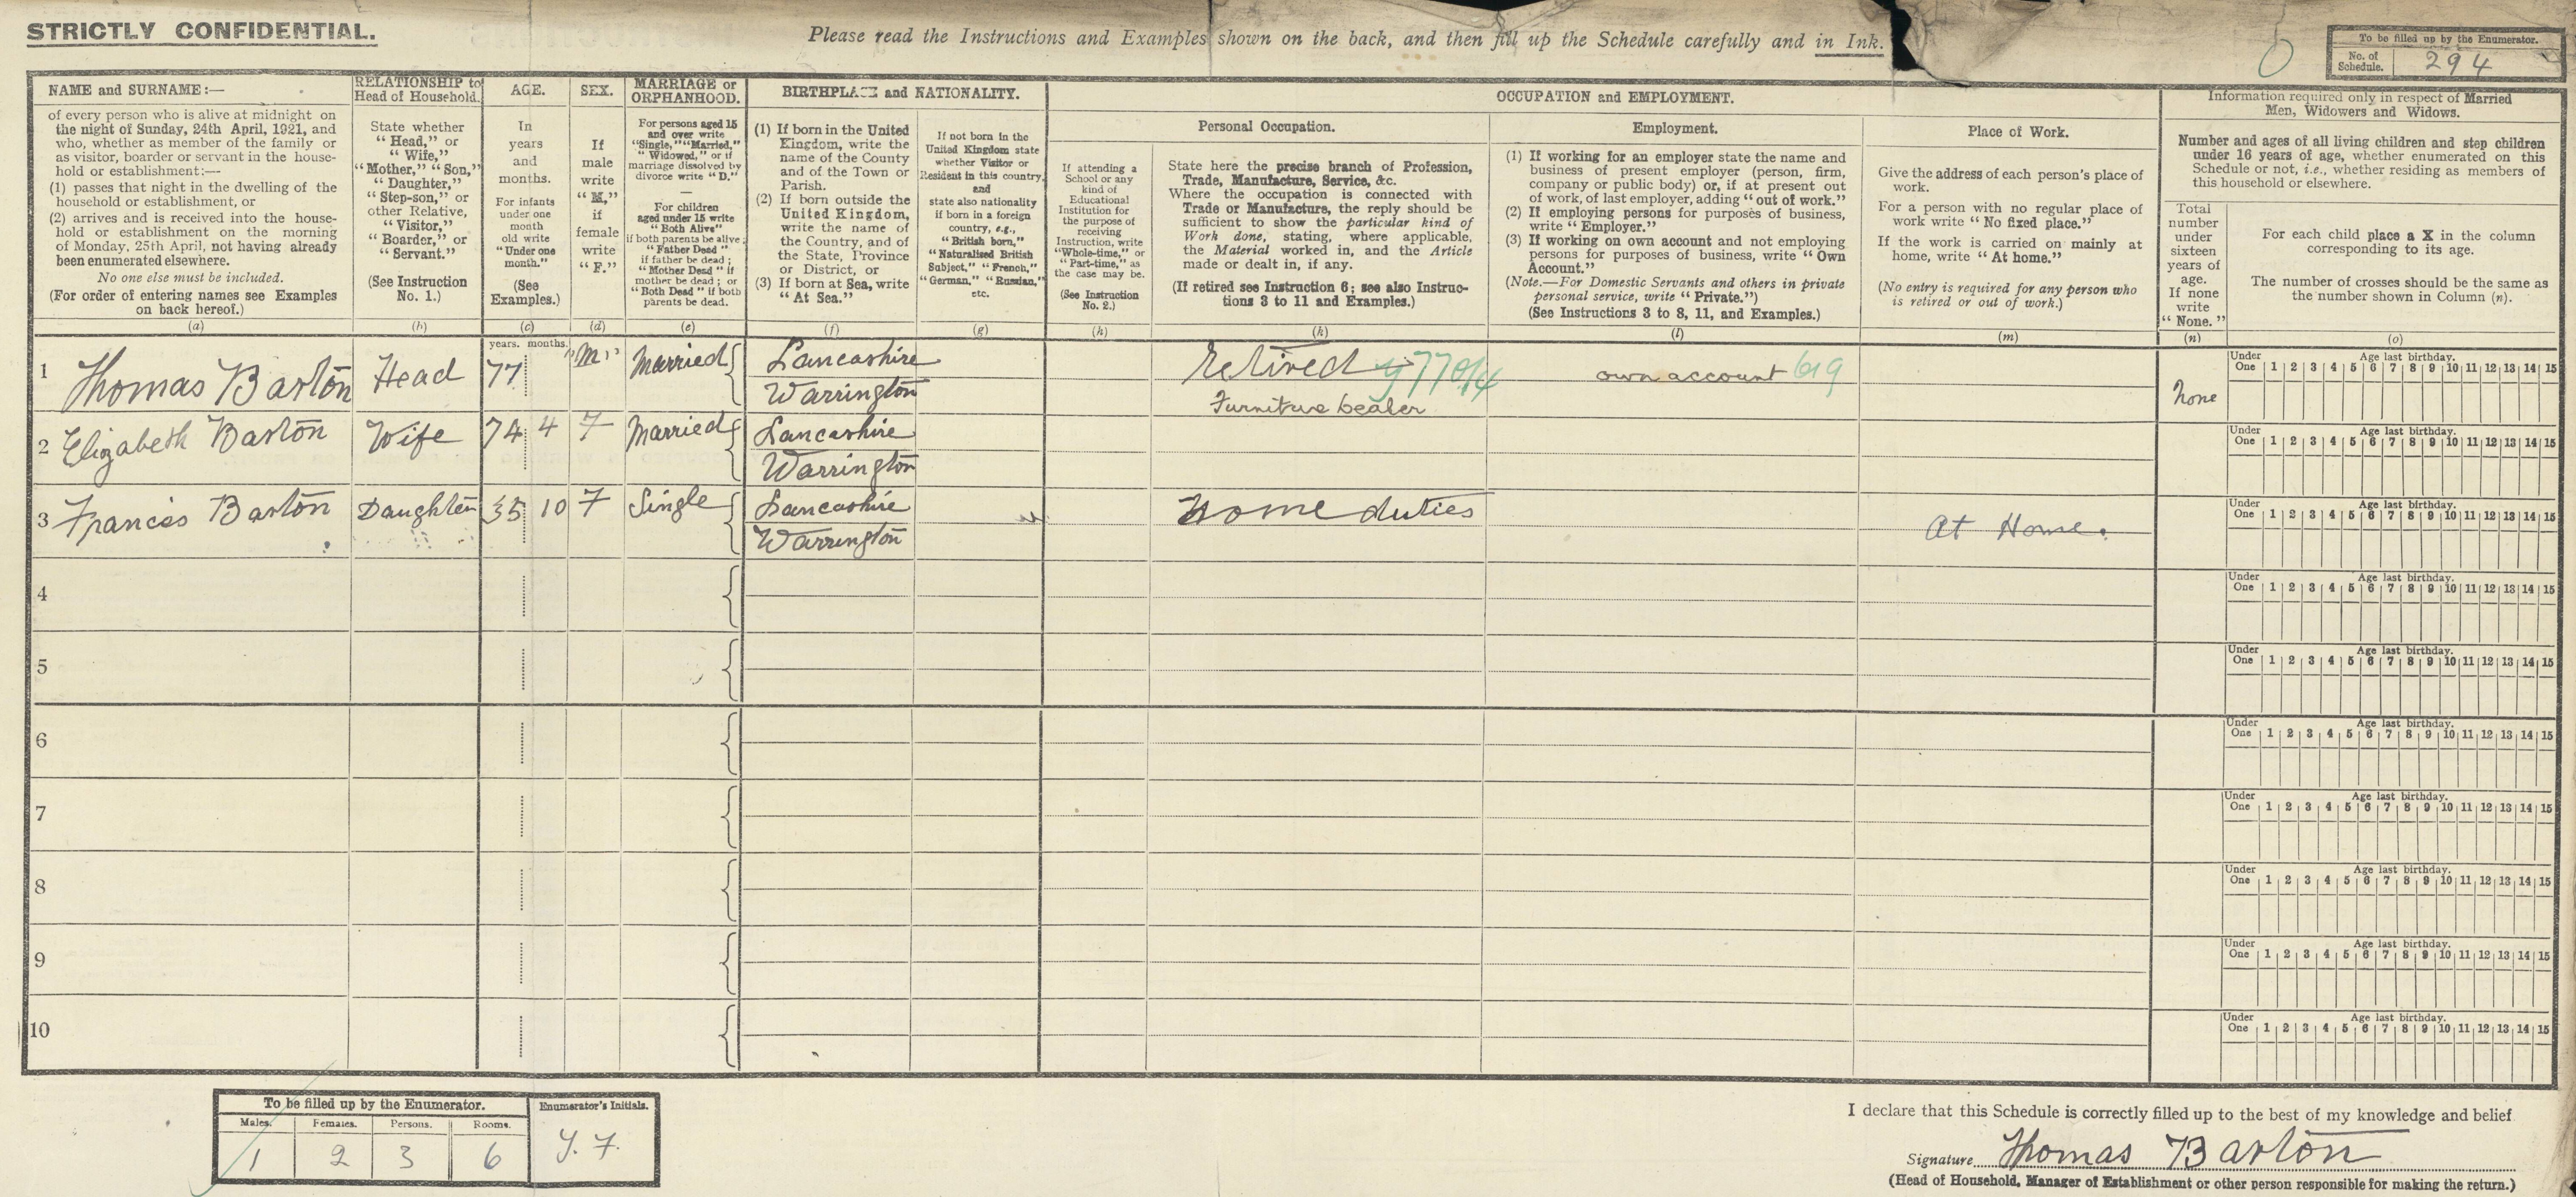 STRICTLY CONFIDENTIAL.
Please read the Instructions and Examples shown on the back, and then fill up the Schedule carefully and in Ink.
To be filled up by the Enumerator.
No. of Schedule. 294
NAME and SURNAME:—
of every person who is alive at midnight on
the night of Sunday, 24th April, 1921, and
who, whether as member of the family or
as visitor, boarder or servant in the house-
hold or establishment:—
(1) passes that night in the dwelling of the
household or establishment, or
(2) arrives and is received into the house-
hold or establishment on the morning
of Monday, 25th April, not having already
been enumerated elsewhere.
No one else must be included.
(For order of entering names see Examples
on back hereof.)
(a)
RELATIONSHIP to
Head of Household.
State whether
"Head," or
"Wife,"
"Mother," "Son,"
"Daughter,"
"Step-son," or
other Relative,
"Visitor,"
"Boarder," or
"Servant."
(See Instruction
No. 1.)
(b)
AGE.
In
years
and
months.
For infants
under one
month
old write
"Under one
month."
(See
Examples.)
(c)
SEX.
If
male
write
"M,"
if
female
write
"F."
(d)
MARRIAGE or
ORPHANHOOD.
For persons aged 15
and over write
"Single," "Married,"
"Widowed," or if
marriage dissolved by
divorce write "D."
—
For children
aged under 15 write
"Both Alive"
if both parents be alive;
"Father Dead"
if father be dead;
"Mother Dead" if
mother be dead; or
"Both Dead" if both
parents be dead.
(e)
BIRTHPLACE and NATIONALITY.
(1) If born in the United
Kingdom, write the
name of the County
and of the Town or
Parish.
(2) If born outside the
United Kingdom,
write the name of
the Country, and of
the State, Province
or District, or
(3) If born at Sea, write
"At Sea."
(f)
If not born in the
United Kingdom state
whether Visitor or
Resident in this country,
and
state also nationality
if born in a foreign
country, e.g.,
"British born,"
"Naturalised British
Subject," "French,"
"German," "Russian,"
etc.
(g)
OCCUPATION and EMPLOYMENT.
Personal Occupation.
If attending a
School or any
kind of
Educational
Institution for
the purpose of
receiving
Instruction, write
"Whole-time," or
"Part-time," as
the case may be.
(See Instruction
No. 2.)
(h)
State here the precise branch of Profession,
Trade, Manufacture, Service, &c.
Where the occupation is connected with
Trade or Manufacture, the reply should be
sufficient to show the particular kind of
Work done, stating, where applicable,
the Material worked in, and the Article
made or dealt in, if any.
(If retired see Instruction 6; see also Instruc-
tions 3 to 11 and Examples.)
(k)
Employment.
(1) If working for an employer state the name and
business of present employer (person, firm,
company or public body) or, if at present out
of work, of last employer, adding "out of work."
(2) If employing persons for purposes of business,
write "Employer."
(3) If working on own account and not employing
persons for purposes of business, write "Own
Account."
(Note.—For Domestic Servants and others in private
personal service, write "Private.")
(See Instructions 3 to 8, 11, and Examples.)
(l)
Place of Work.
Give the address of each person's place of
work.
For a person with no regular place of
work write "No fixed place."
If the work is carried on mainly at
home, write "At home."
(No entry is required for any person who
is retired or out of work.)
(m)
Information required only in respect of Married
Men, Widowers and Widows.
Number and ages of all living children and step children
under 16 years of age, whether enumerated on this
Schedule or not, i.e., whether residing as members of
this household or elsewhere.
Total
number
under
sixteen
years of
age.
If none
write
"None."
(n)
For each child place a X in the column
corresponding to its age.
The number of crosses should be the same as
the number shown in Column (n).
(o)
years. months.
1 Thomas Barton Head 77 "M" Married Lancashire Retired 770/4 own account 619 None
Warrington Furniture Dealer
Under One Age last birthday. 1 2 3 4 5 6 7 8 9 10 11 12 13 14 15
2 Elizabeth Barton Wife 74 4 F Married Lancashire
Warrington
Under One Age last birthday. 1 2 3 4 5 6 7 8 9 10 11 12 13 14 15
3 Francis Barton Daughter 35 10 F Single Lancashire Home duties At Home.
Warrington
Under One Age last birthday. 1 2 3 4 5 6 7 8 9 10 11 12 13 14 15
4
Under One Age last birthday. 1 2 3 4 5 6 7 8 9 10 11 12 13 14 15
5
Under One Age last birthday. 1 2 3 4 5 6 7 8 9 10 11 12 13 14 15
6
Under One Age last birthday. 1 2 3 4 5 6 7 8 9 10 11 12 13 14 15
7
Under One Age last birthday. 1 2 3 4 5 6 7 8 9 10 11 12 13 14 15
8
Under One Age last birthday. 1 2 3 4 5 6 7 8 9 10 11 12 13 14 15
9
Under One Age last birthday. 1 2 3 4 5 6 7 8 9 10 11 12 13 14 15
10
Under One Age last birthday. 1 2 3 4 5 6 7 8 9 10 11 12 13 14 15
To be filled up by the Enumerator. Enumerator's Initials.
Males. Females. Persons. Rooms.
1 2 3 6 J. F.
I declare that this Schedule is correctly filled up to the best of my knowledge and belief
Signature Thomas Barton
(Head of Household, Manager of Establishment or other person responsible for making the return.)